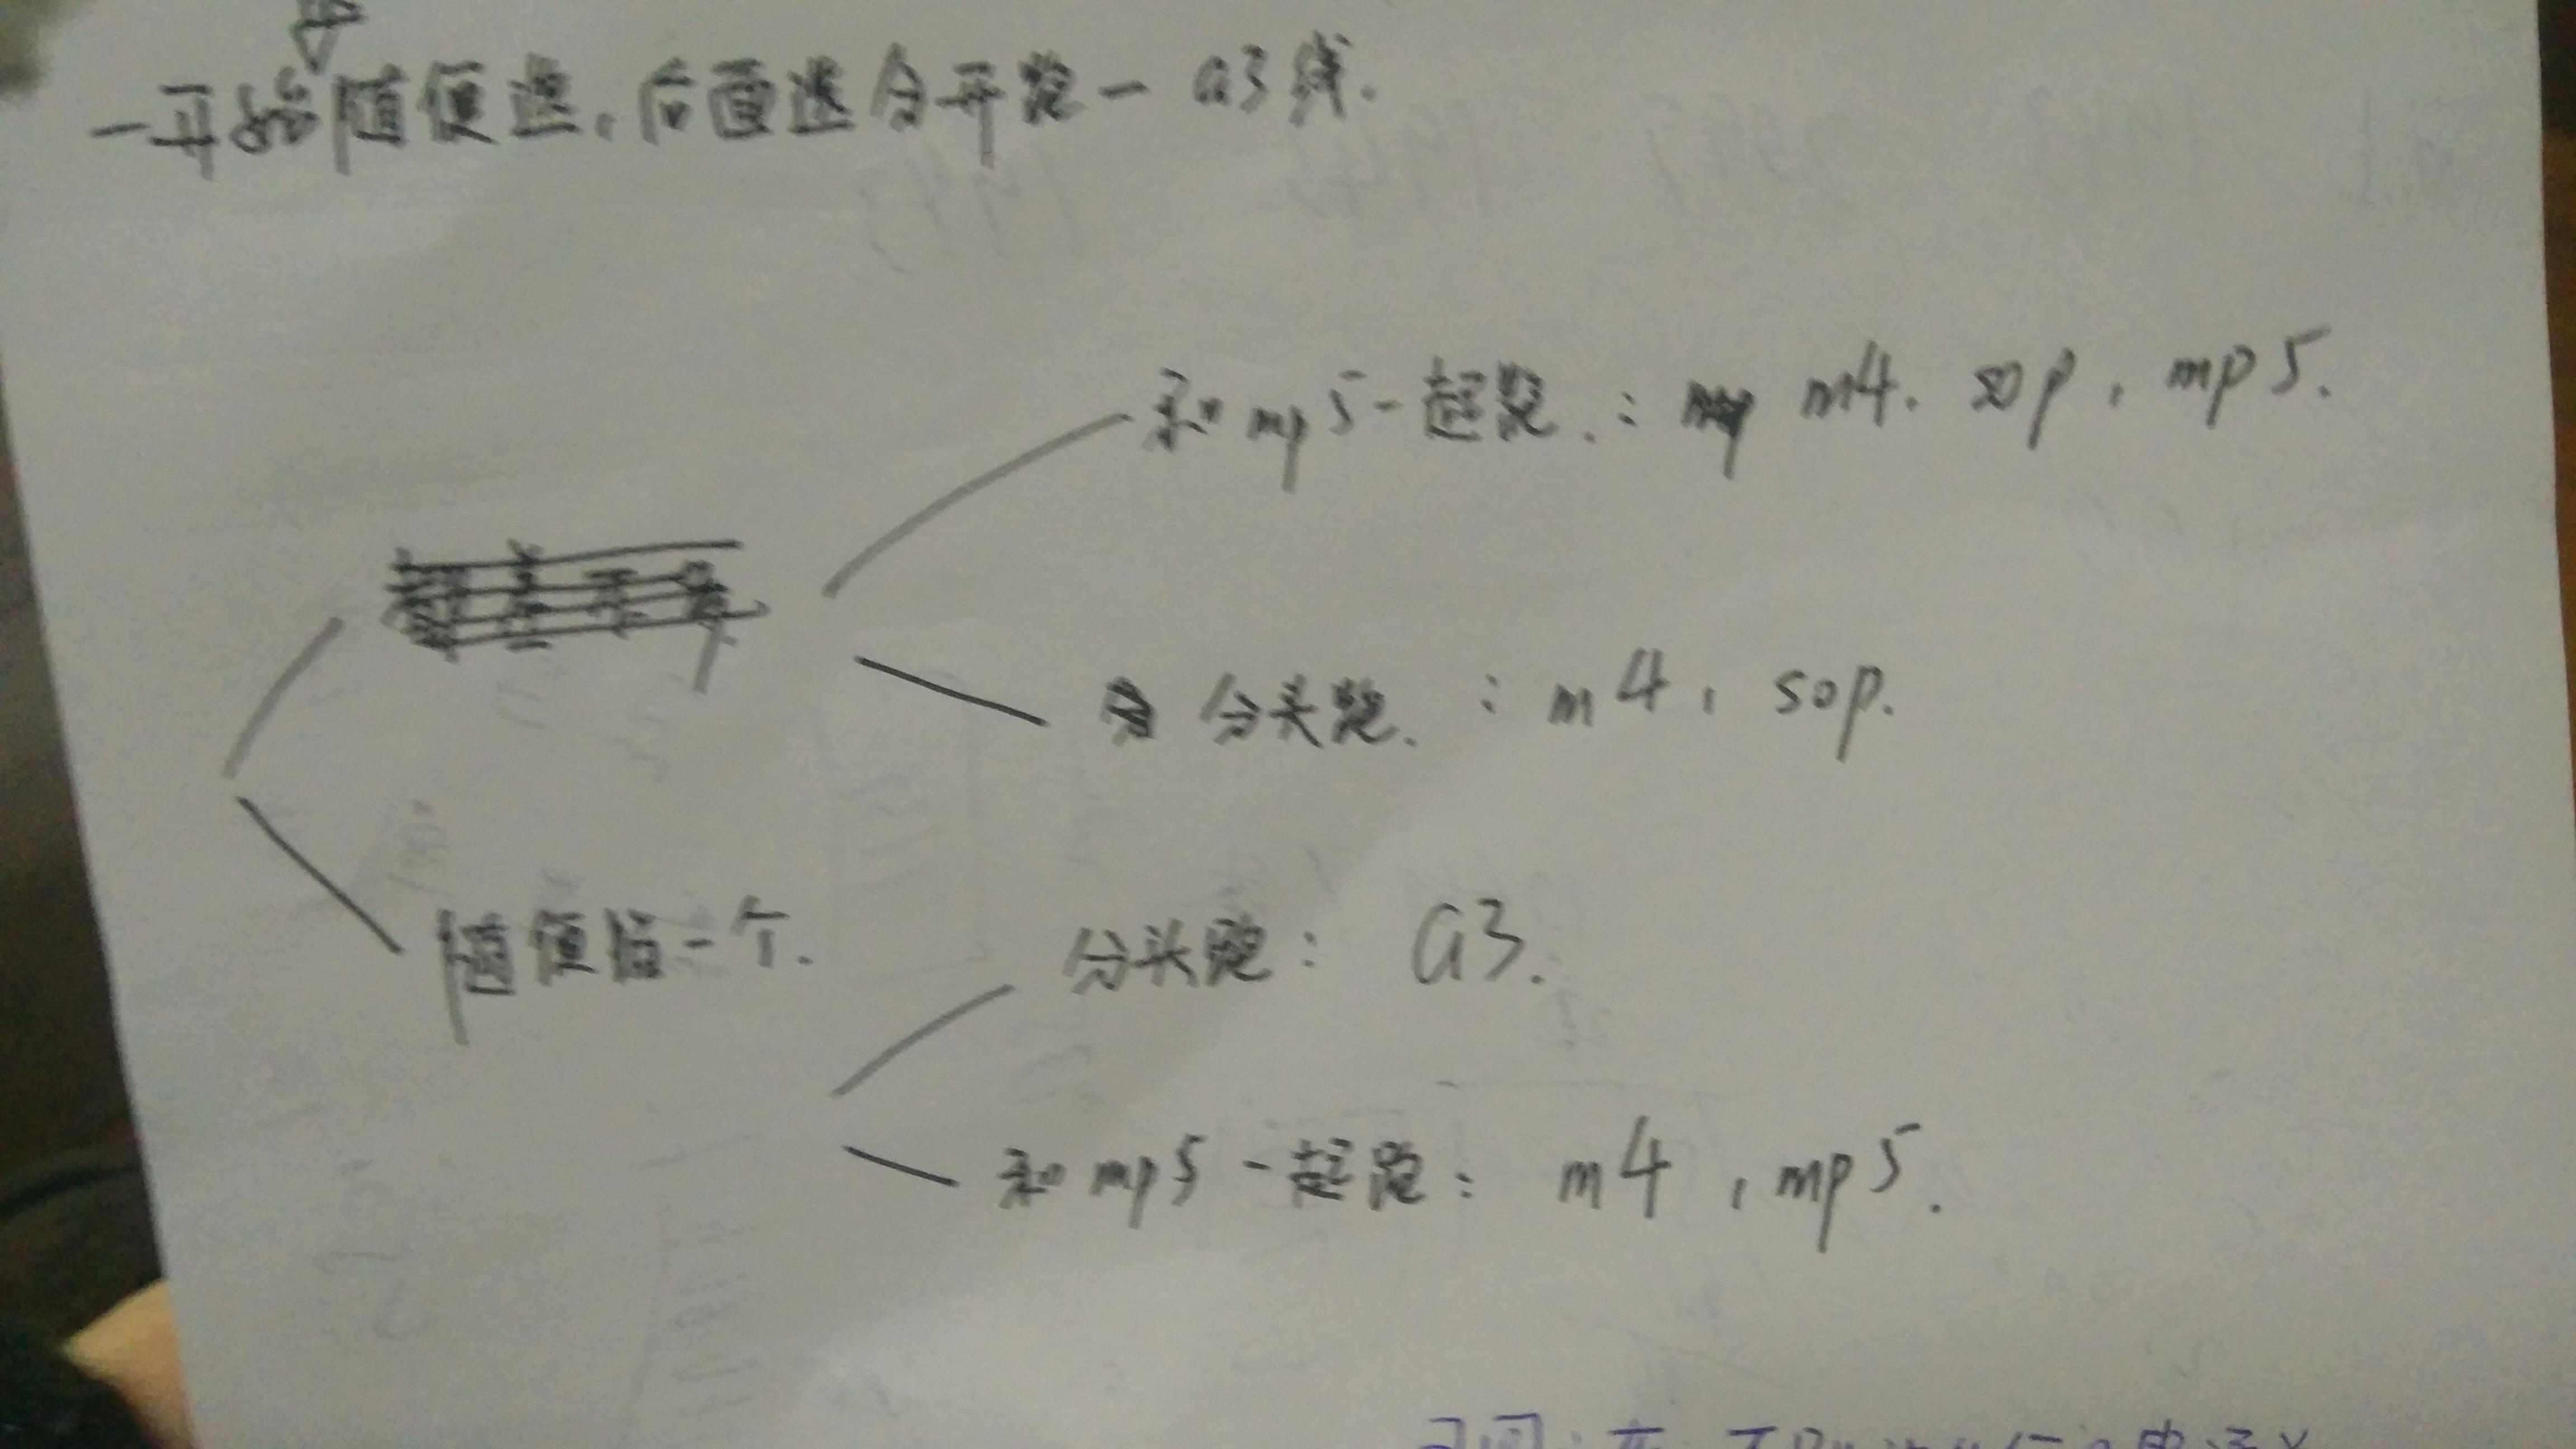 一开始随便选，后面选分开跑一a3线.
和mp5一起跑.： m4. sop, mp5.
分头跑.：m4, sop.
随便指一个.
分头跑： a3.
和mp5一起跑： m4, mp5.